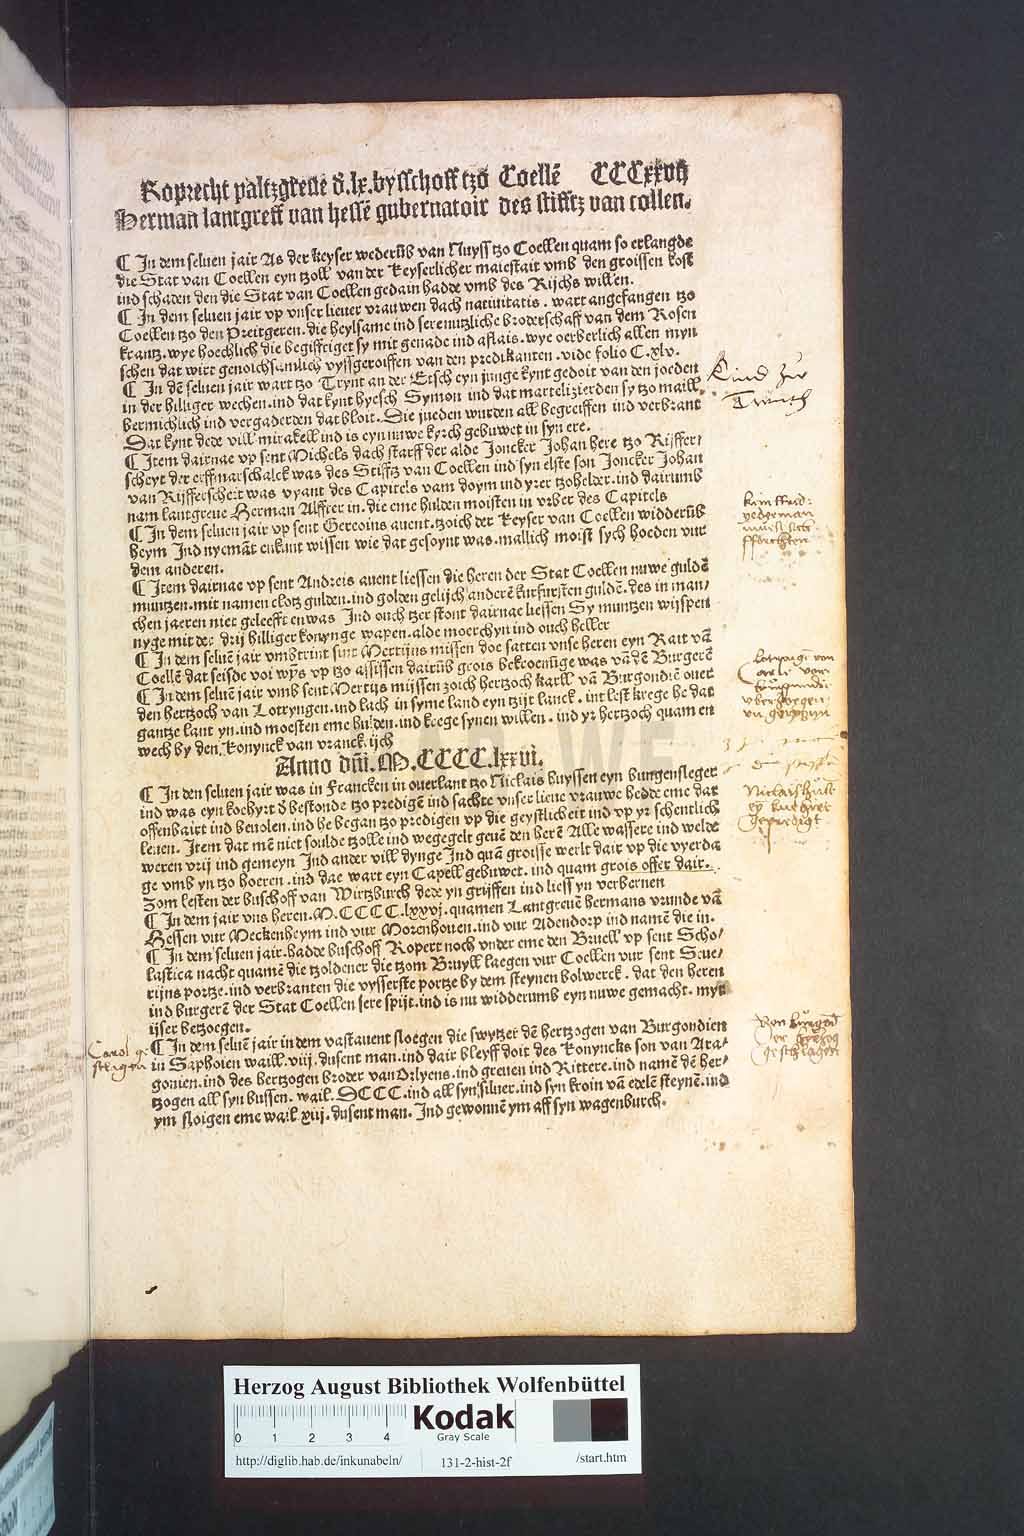 Roprecht paltzgreue d̕.lx.bysschoff tzo Coellē CCCxxvij
Herman lantgreff van hessē gubernatoir des stifftz van collen.
¶ In dem seluen jair As der keyser wederūb van Nuyss tzo Coellen quam so erlangde
die Stat van Coellen eyn tzoll van der Keyserlicher maiestait vmb den groissen kost
ind schaden den die Stat van Coellen gedain hadde vmb des Rijchs willen.
¶ In dem seluen jair vp vnser lieuer vrauwen dach natiuitatis. wart angefangen tzo
Coellen tzo den Preitgeren.die heylsame ind sere nutzliche broderschaff van dem Rosen
krantz.wye hoechlich die begifftiget sy mit genade ind aflais.wye oerberlich allen myn
schen dat wirt genoichsamlich vyssgeroiffen van den predikanten.vide folio C.xlv.
¶ In dē seluen jair wart tzo Trynt an der Etsch eyn junge kynt gedoit van den joeden
in der hilliger wechen.ind dat kynt hyesch Symon ind dat martelizierden sy tzo maill
bermichlich ind vergaderden dat bloit.Die jueden wurden all begreiffen ind verbrant
Dat kynt dede vill mirakell ind is eyn nuwe kyrch gebuwet in syn ere.
¶ Item dairnae vp sent Michels dach starff der alde Joncker Johan here tzo Rijffer⸗
scheyt der erffmarschalck was des Stifftz van Coellen ind syn elste son Joncker Johan
van Rijfferscheit was vyant des Capitels vam doym ind yrer tzohelder.ind dairumb
nam lantgreue Herman Alffter in.die eme hulden moisten in vrber des Capitels
¶ In dem seluen jair vp sent Gereoins auent.tzoich der keyser van Coellen widderūb
heym Ind nyemāt enkunt wissen wie dat gesoynt was.mallich moist sych hoeden vur
dem anderen.
¶ Item dairnae vp sent Andreis auent liessen die heren der Stat Coellen nuwe guldē
muntzen.mit namen clotz gulden.ind golden gelijch anderē kurfursten guldē.des in man⸗
chen jaeren niet geleefft en was Ind ouch tzer stont dairnae liessen Sy muntzen wijspen
nyge mit der drij hilliger konynge wapen.alde moerchyn ind ouch heller
¶ In dem seluē jair vmbtrint sint Mertijns missen doe satten vnse heren eyn Rait vā
Coellē dat seisde voi wijs vp tzo assissen dairūb grois bekroenūge was vā dē Burgerē
¶ In dem seluē jair vmb sent Mertijs mijssen zoich hertzoch karll vā Burgondiē ouer
den hertzoch van Lotryngen.ind lach in syme land eyn tzijt lanck.int lest krege he dat
gantze lant yn.ind moesten eme hulden.ind kregE synen willen.ind yr hertzoch quam en
wech by den Konynck van vranckrijch
Anno dn̄i.M.CCCC.lxxvi.
¶ In den seluen jair was in Francken in ouerlant tzo Niclais huyssen eyn bungensleger
ind was eyn koehyrt d̕ bestonde tzo predigē ind sachte vnser lieue vrauwe hedde eme dat
offenbairt ind beuolen.ind he began tzo predigen vp die geystlicheit ind vp yr schentlich
leuen. Item dat mē niet soulde tzolle ind wegegelt geuē den herē Alle wassere ind welde
weren vrij ind gemeyn Ind ander vill dynge Ind quā groisse werlt dair vp die vyerda
ge vmb yn tzo hoeren.ind dae wart eyn Capell gebuwet.ind quam grois offer dair.
Zom lesten der buschoff van Wirtzburch dede yn grijffen ind liess yn verbernen
¶ In dem jair vns heren.M.CCCC.lxxvj.quamen Lantgreuē hermans vrunde vā
Hessen vur Meckenheym ind vur Morenhouen.ind vur Adendorp ind namē die in.
¶ In dem seluen jair.hadde buschoff Ropert noch vnder eme den Bruell vp sent Scho⸗
lastica nacht quamē die tzoldener die tzom Bruyll laegen vur Coellen vur sent Seue⸗
rijns portze.ind verbranten die vysserste portze by dem steynen bolwerck.dat den heren
ind burgerē der Stat Coellen sere spijt.ind is nu widderumb eyn nuwe gemacht.myt
ijser betzoegen.
¶ In dem seluē jair in dem vastauent sloegen die swytzer dē hertzogen van Burgondien
in Saphoien waill.viij.dusent man.ind dair bleyff doit des Konyncks son van Ara⸗
gonien.ind des hertzogen broder van Orlyens.ind greuen ind Rittere.ind namē dē her⸗
tzogen all syn bussen.wail.DCCC.ind all syn siluer.ind syn kroin vā edelē steynē.ind
ym sloigen eme wail xiij.dusent man. Ind gewonnē ym aff syn wagenburch.
Kind zu
Trinth
Niclaishuss
gepredigt
Carol ge
slagen
Von Burgund
der hertzog
geschlagen
Herzog August Bibliothek Wolfenbüttel
0 1 2 3 4
Kodak
Gray Scale
http://diglib.hab.de/inkunabeln/ 131-2-hist-2f /start.htm